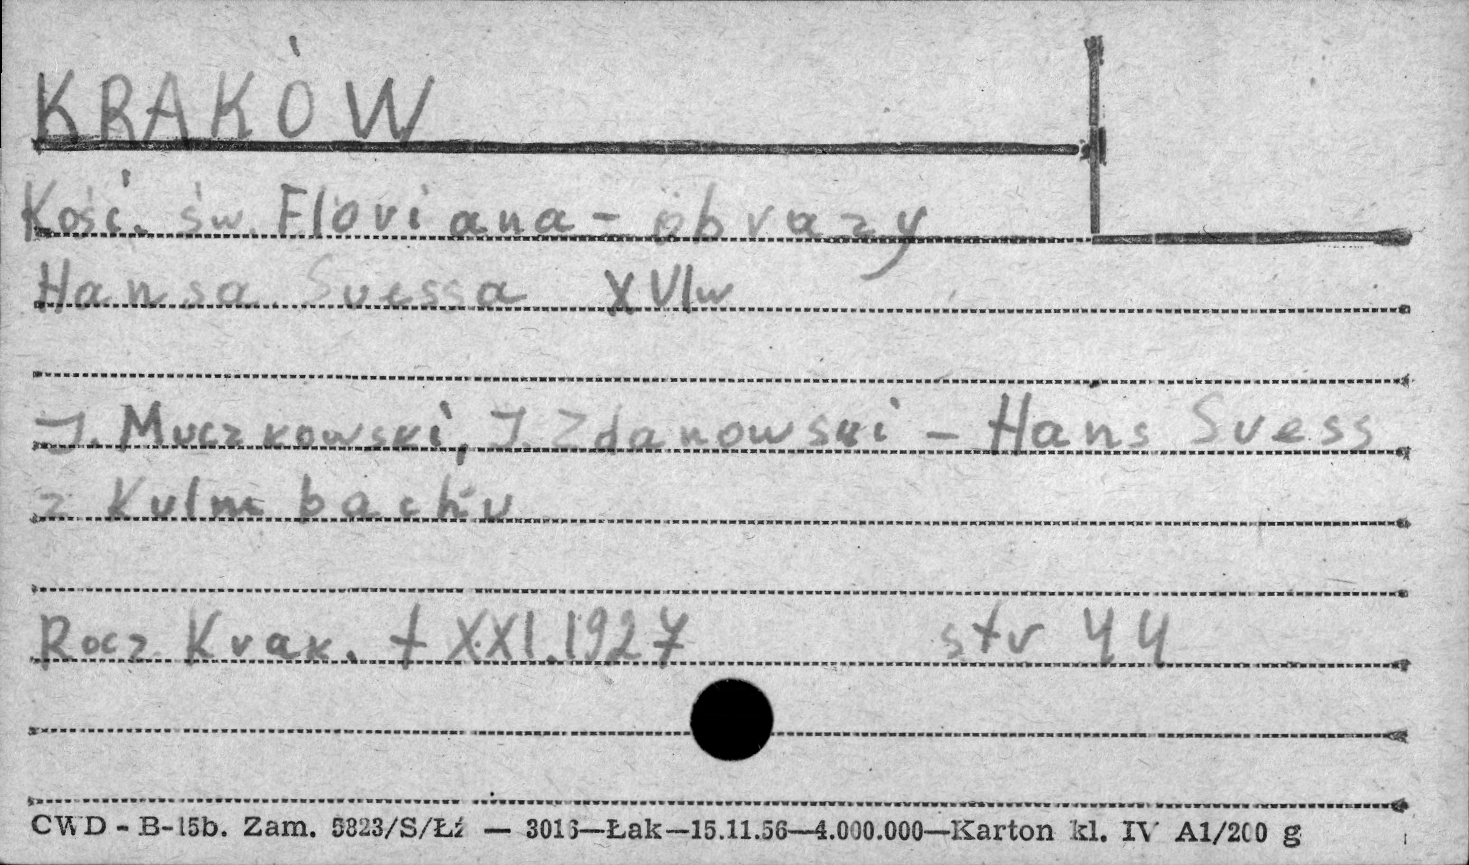 KRAKÓW
Kość. św. Floriana - obrazy
Hansa Suessa XVIw
J. Muczkowski, J. Zdanowski - Hans Suess
z Kulmbachu
Rocz Krak. t XXI.1927 str 44
CWD - B-15b. Zam. 5823/S/Łź — 3016—Łak—15.11.56—4.000.000—Karton kl. IV A1/200 g